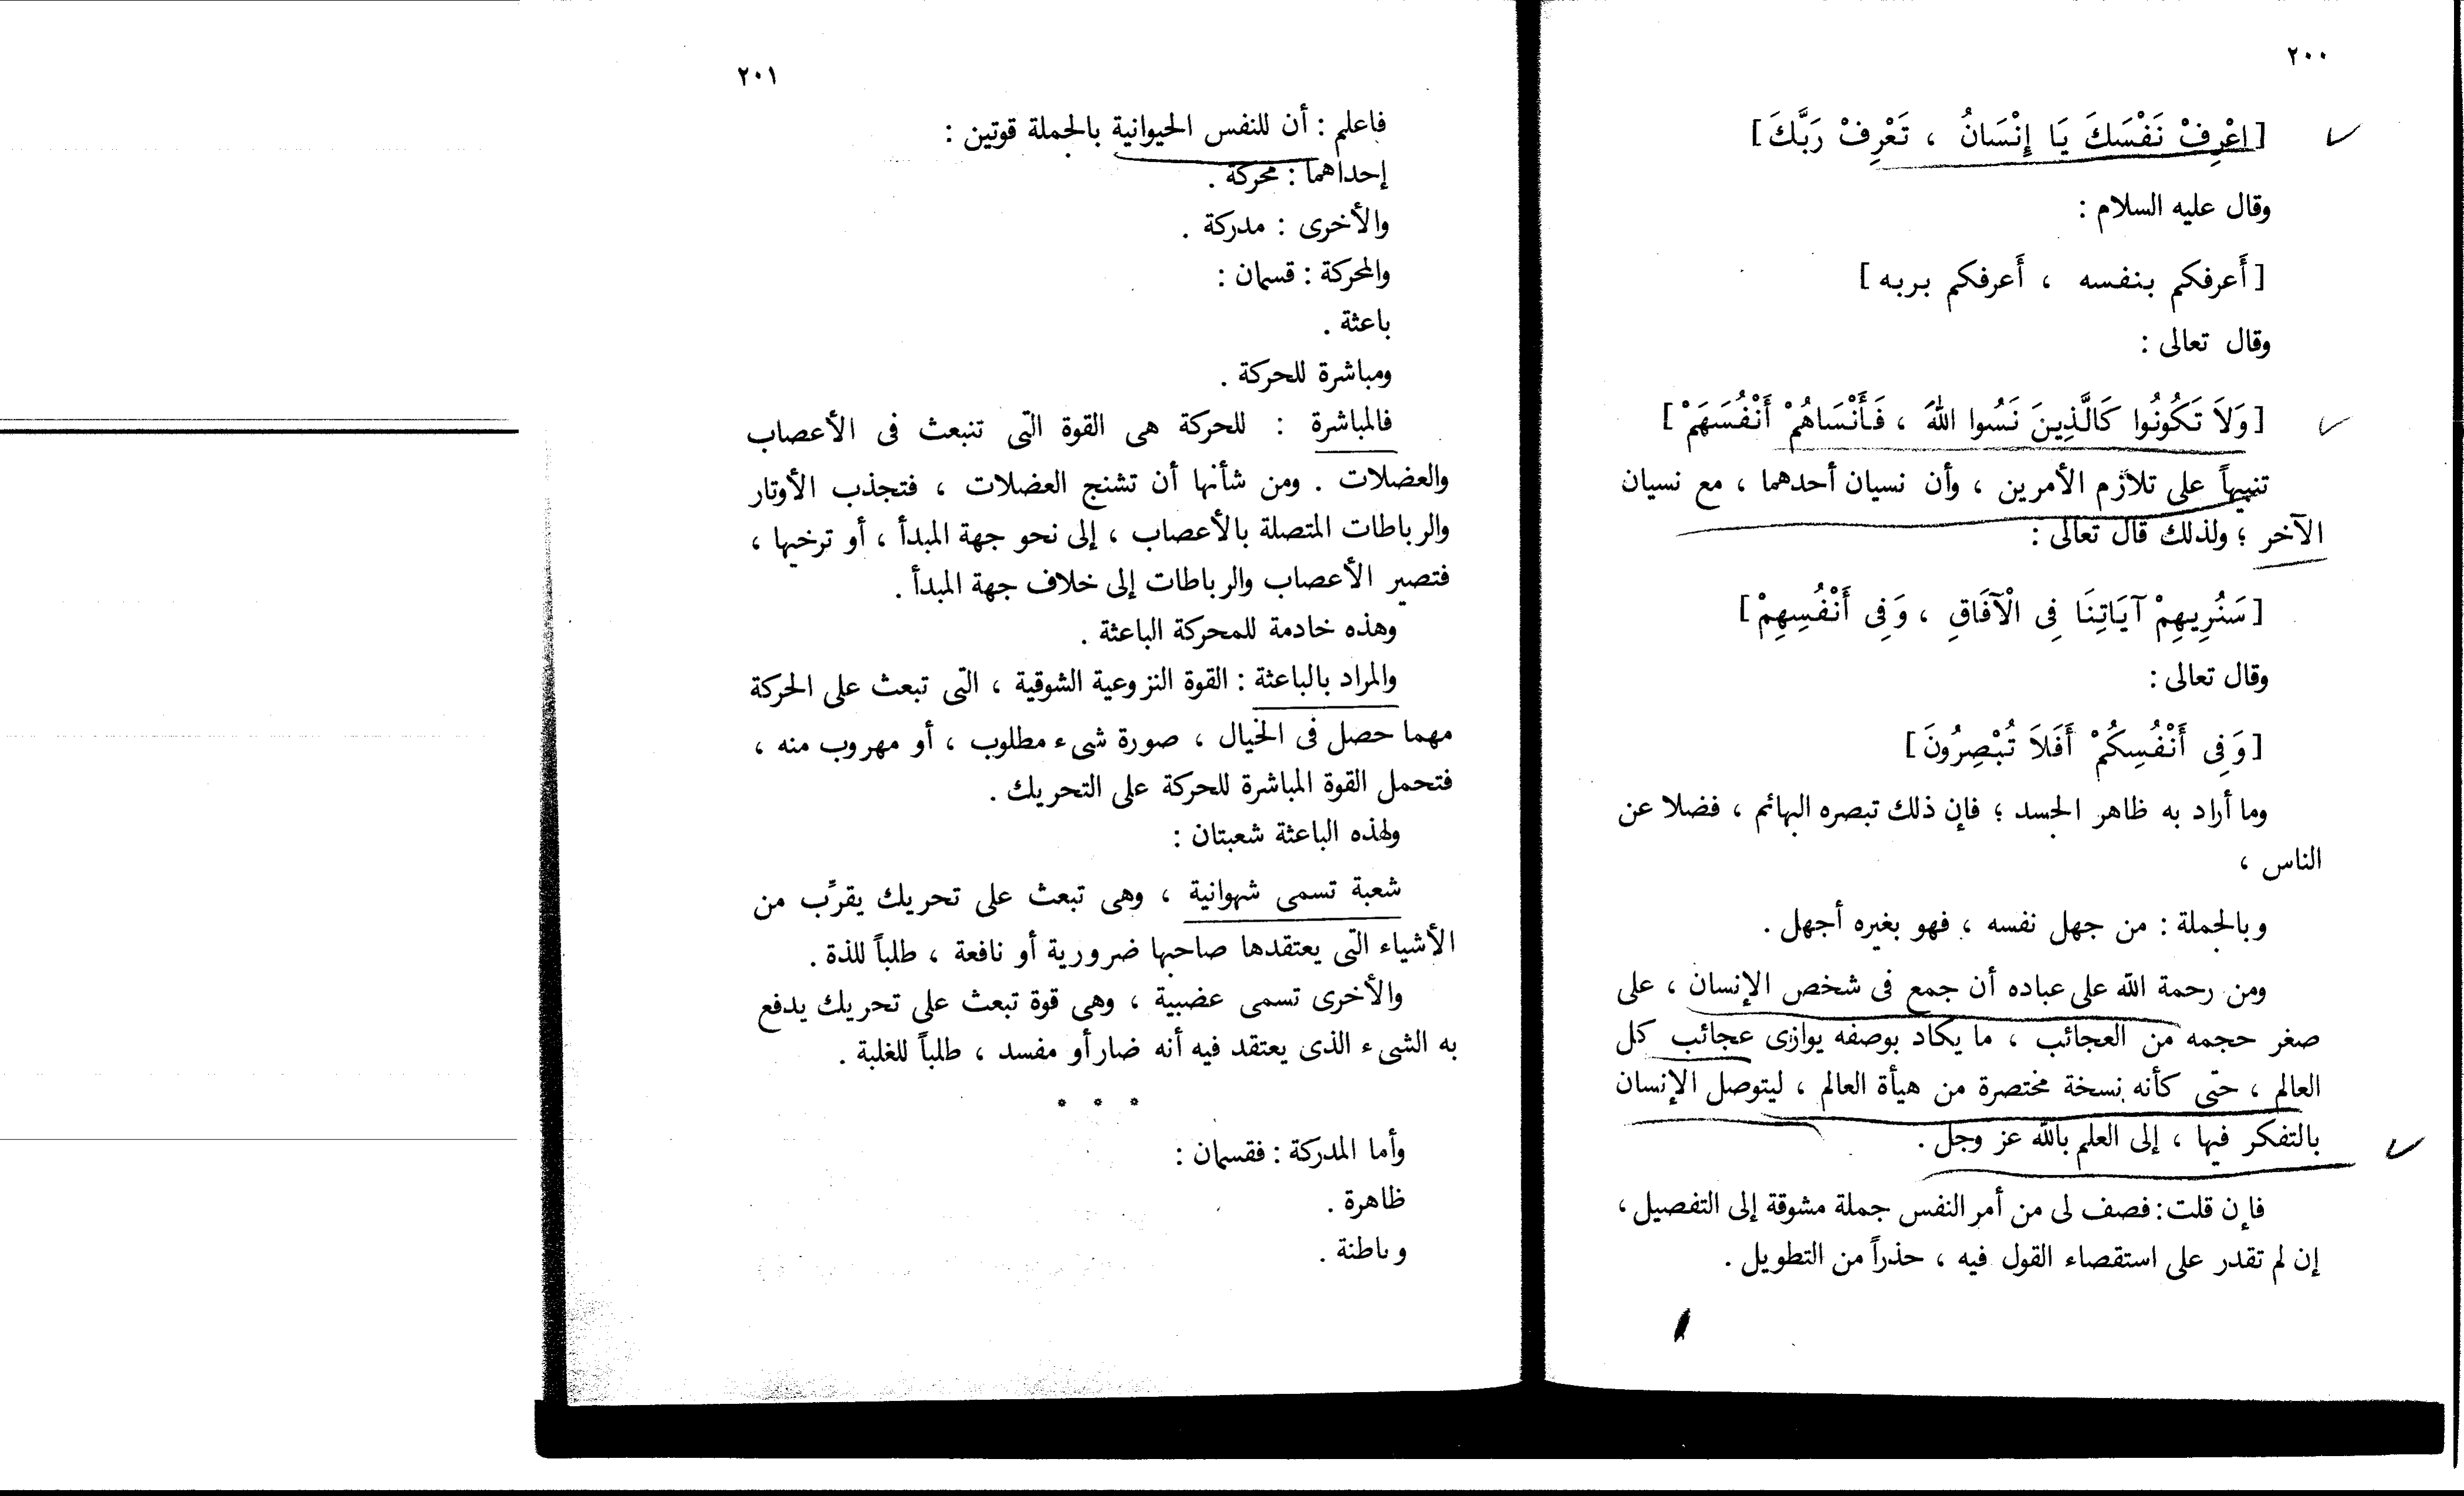 ٢٠٠
[اِعْرِفْ نَفْسَكَ يَا إِنْسَانُ ، تَعْرِفْ رَبَّكَ]
وقال عليه السلام :
[أَعرفكم بنفسه ، أَعرفكم بربه]
وقال تعالى :
[وَلاَ تَكُونُوا كَالَّذِينَ نَسُوا اللهَ ، فَأَنْسَاهُمْ أَنْفُسَهَمْ]
تنبيهاً على تلازم الأمرين ، وأن نسيان أحدهما ، مع نسيان
الآخر ؛ ولذلك قال تعالى :
[سَنُرِيهِمْ آيَاتِنَا فِى الْآفَاقِ ، وَفِى أَنْفُسِهِمْ]
وقال تعالى :
[وَفِى أَنْفُسِكُمْ أَفَلاَ تُبْصِرُونَ]
وما أراد به ظاهر الجسد ؛ فإن ذلك تبصره البهائم ، فضلا عن
الناس ،
وبالجملة : من جهل نفسه ، فهو بغيره أجهل .
ومن رحمة الله على عباده أن جمع فى شخص الإنسان ، على
صغر حجمه من العجائب ، ما يكاد بوصفه يوازى عجائب كل
العالم ، حتى كأنه نسخة مختصرة من هيأة العالم ، ليتوصل الإنسان
بالتفكر فيها ، إلى العلم بالله عز وجل .
فإن قلت : فصف لى من أمر النفس جملة مشوقة إلى التفصيل ،
إن لم تقدر على استقصاء القول فيه ، حذراً من التطويل .
٢٠١
فاعلم : أن للنفس الحيوانية بالجملة قوتين :
إحداهما : محركة .
والأخرى : مدركة .
والمحركة : قسمان :
باعثة .
ومباشرة للحركة .
فالمباشرة : للحركة هى القوة التى تنبعث فى الأعصاب
والعضلات . ومن شأنها أن تشنج العضلات ، فتجذب الأوتار
والرباطات المتصلة بالأعصاب ، إلى نحو جهة المبدأ ، أو ترخيها ،
فتصير الأعصاب والرباطات إلى خلاف جهة المبدأ .
وهذه خادمة للمحركة الباعثة .
والمراد بالباعثة : القوة النزوعية الشوقية ، التى تبعث على الحركة
مهما حصل فى الخيال ، صورة شىء مطلوب ، أو مهروب منه ،
فتحمل القوة المباشرة للحركة على التحريك .
ولهذه الباعثة شعبتان :
شعبة تسمى شهوانية ، وهى تبعث على تحريك يقرِّب من
الأشياء التى يعتقدها صاحبها ضرورية أو نافعة ، طلباً للذة .
والأخرى تسمى غضبية ، وهى قوة تبعث على تحريك يدفع
به الشىء الذى يعتقد فيه أنه ضار أو مفسد ، طلباً للغلبة .
* * *
وأما المدركة : فقسمان :
ظاهرة .
وباطنة .